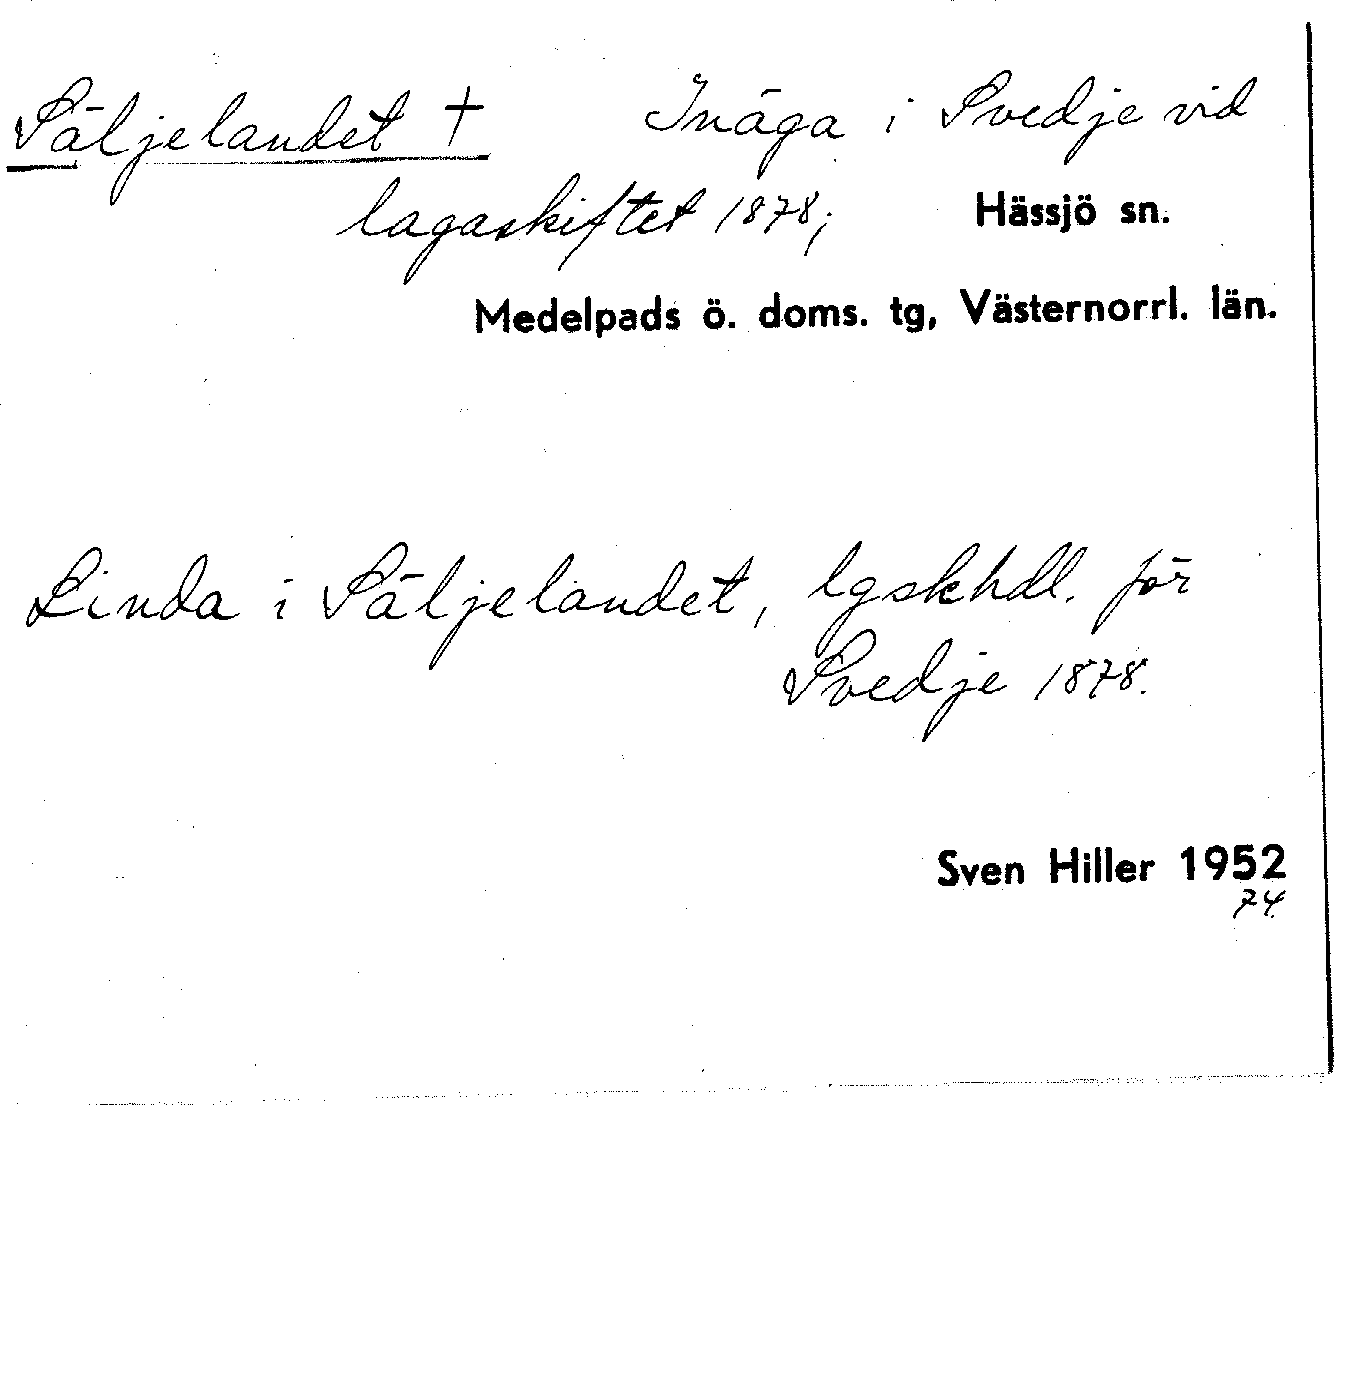 Säljelandet † Inäga i Svedje vid
lagaskiftet 1878; Hässjö sn.
Medelpads ö. doms. tg, Västernorrl. län.
Linda i Säljelandet, lgskhdl. för
Svedje 1878.
Sven Hiller 1952
74